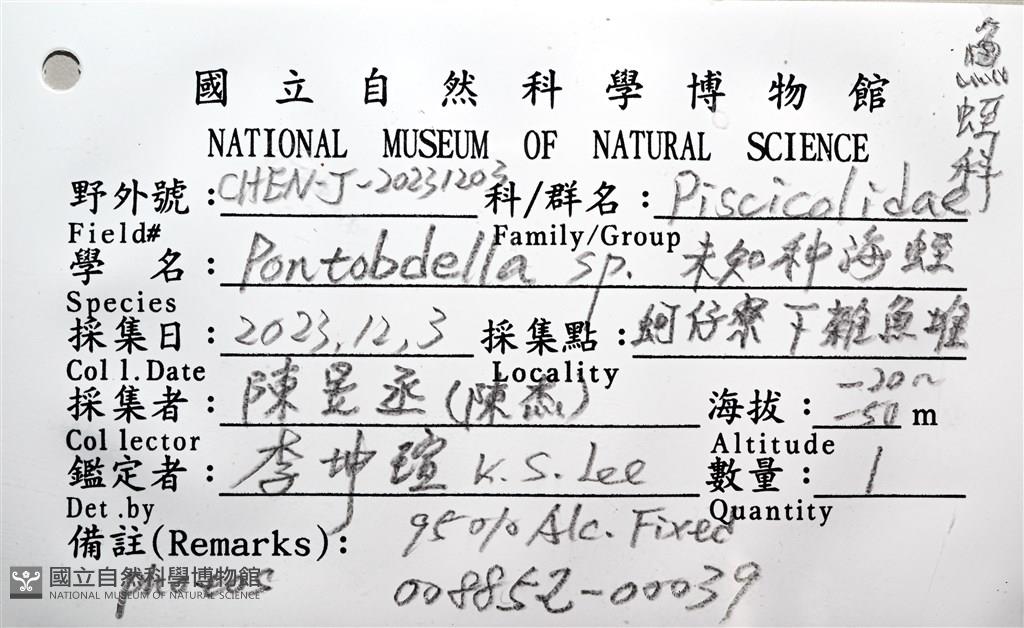 魚蛭科
國立自然科學博物館
NATIONAL MUSEUM OF NATURAL SCIENCE
野外號:CHEN-J-20231203 科/群名:Piscicolidae
Field# Family/Group
學 名:Pontobdella sp. 未知种海蛭
Species
採集日:2023.12.3 採集點:蚵仔寮下雜魚堆
Coll.Date Locality
採集者:陳昱丞(陳杰) 海拔:-20~-50 m
Collector Altitude
鑑定者:李坤瑄 K.S.Lee 數量:1
Det.by Quantity
備註(Remarks): 95% Alc. Fixed
photos 008852-00039
國立自然科學博物館
NATIONAL MUSEUM OF NATURAL SCIENCE